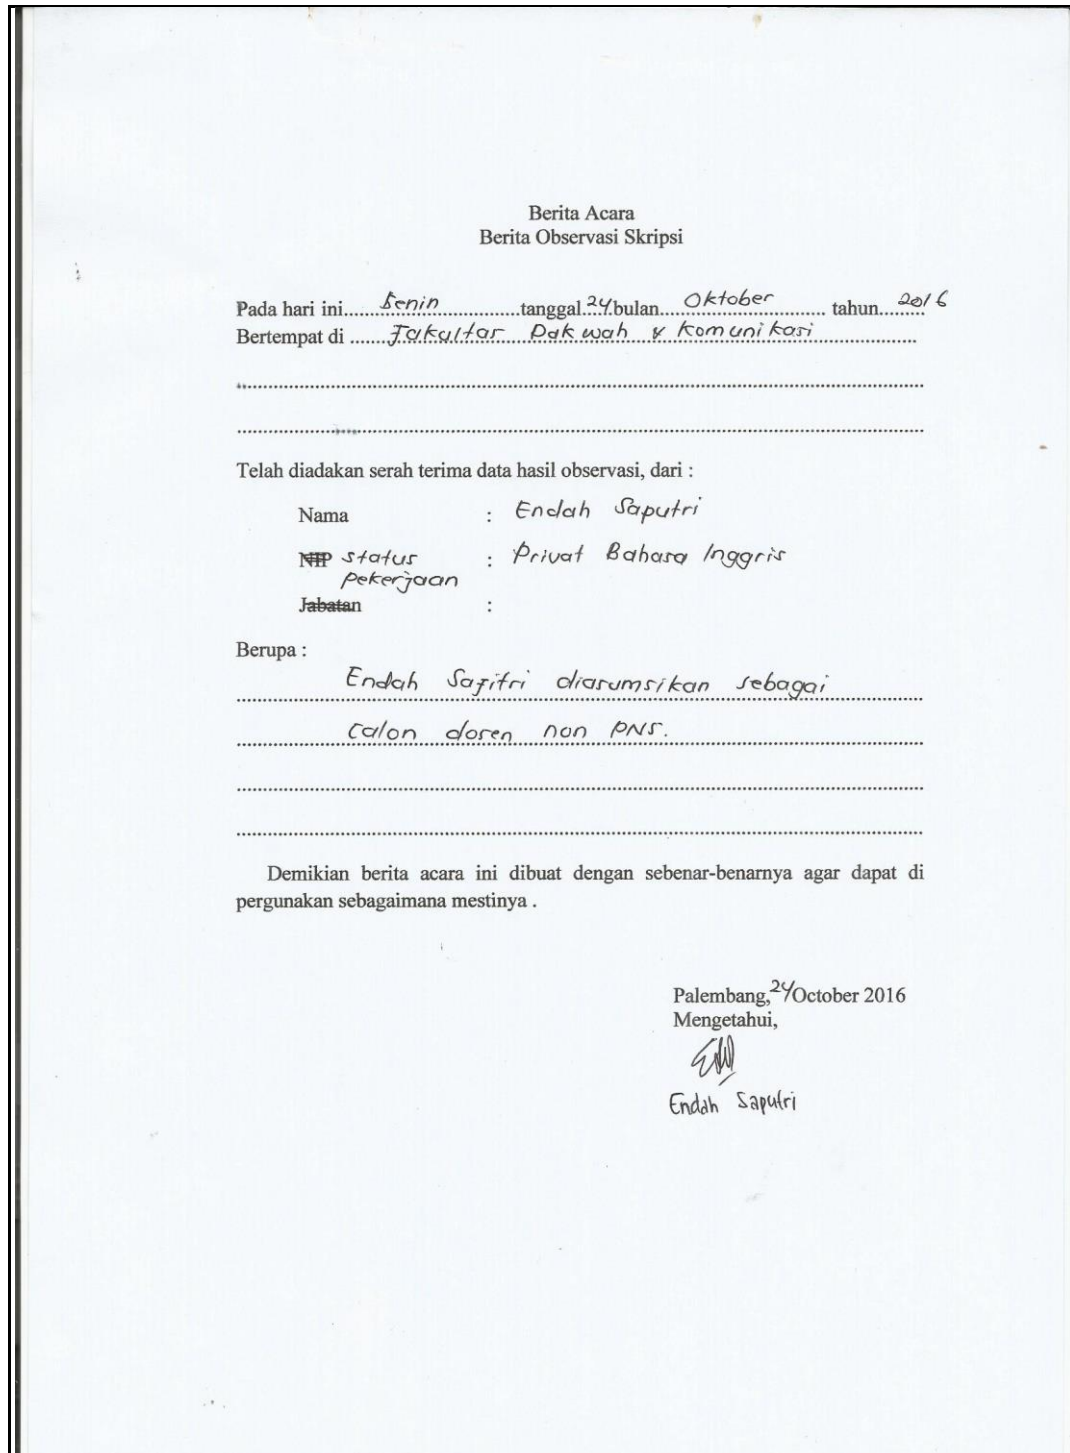 Berita Acara
Berita Observasi Skripsi
Pada hari ini......Senin...............tanggal.24.bulan....Oktober.......... tahun........2016
Bertempat di .......Fakultas....Dakwah...&...Komunikasi....................
....................................................................................
....................................................................................
Telah diadakan serah terima data hasil observasi, dari :
Nama : Endah Saputri
NIP status : Privat Bahasa Inggris
pekerjaan
Jabatan :
Berupa :
Endah Safitri diasumsikan sebagai
calon dosen non PNS.
....................................................................................
....................................................................................
Demikian berita acara ini dibuat dengan sebenar-benarnya agar dapat di
pergunakan sebagaimana mestinya .
Palembang,24 October 2016
Mengetahui,
Endah Saputri